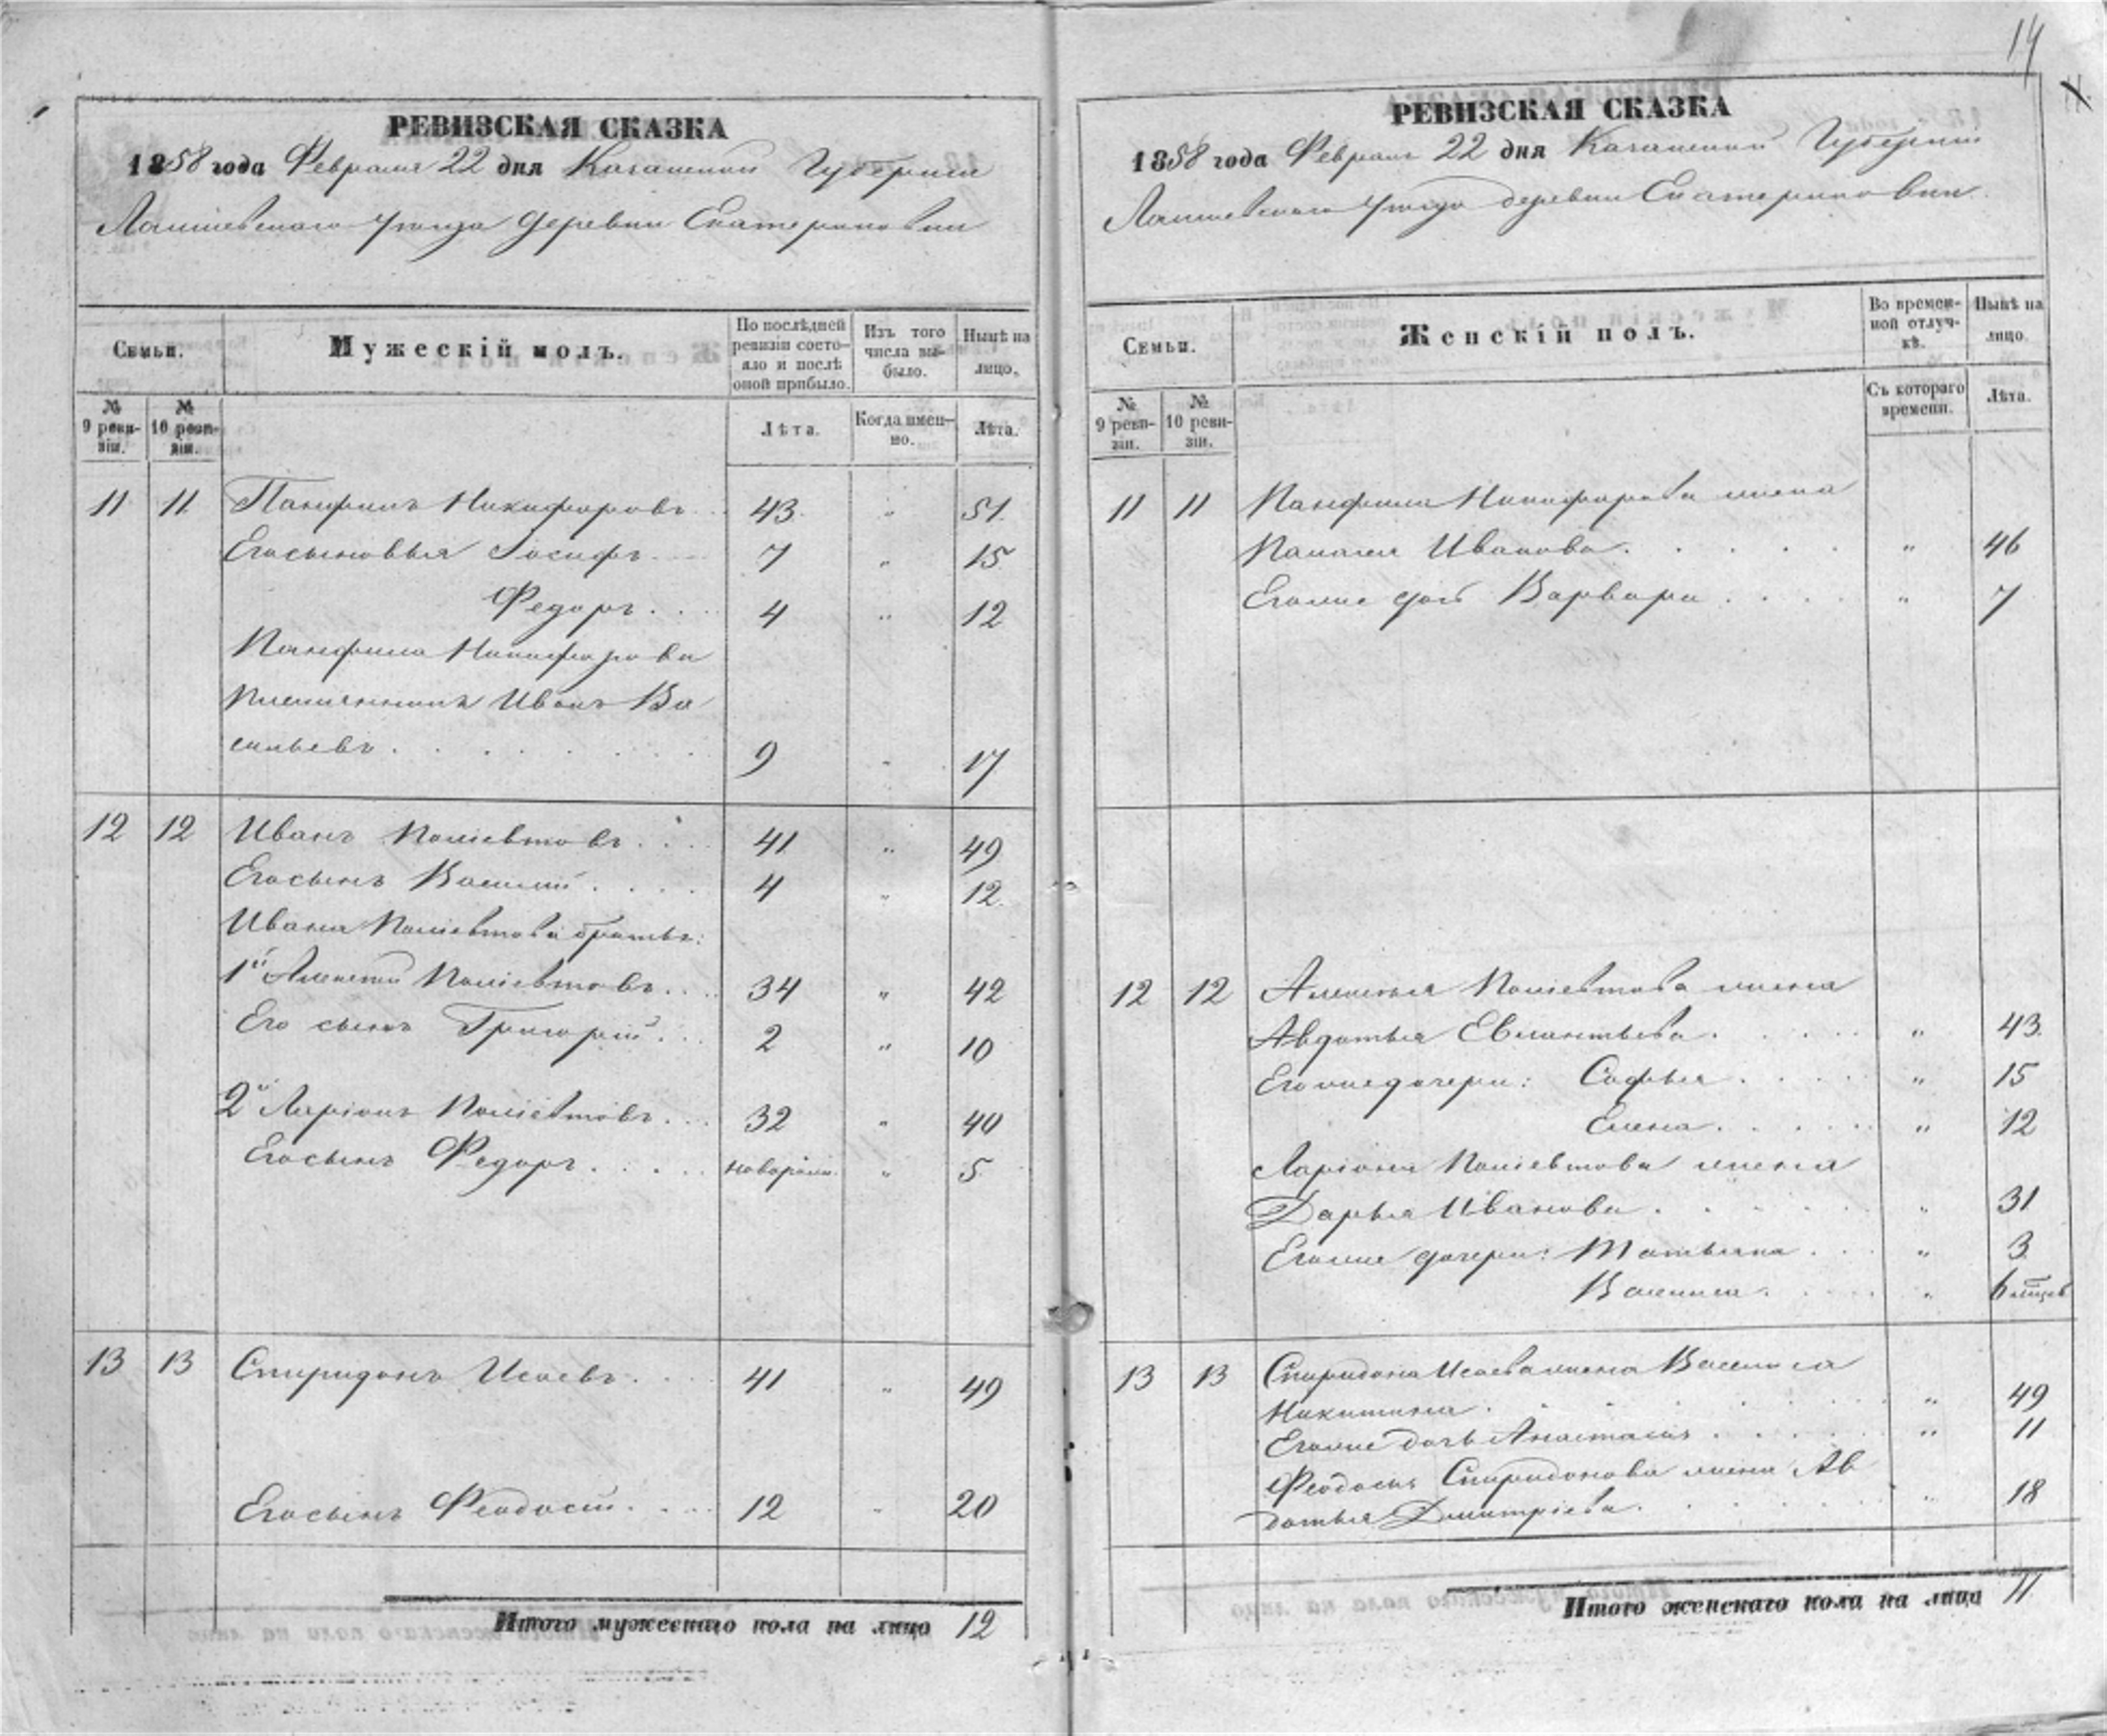 14
РЕВИЗСКАЯ СКАЗКА
1858 года Февраля 22 дня Казанской Губернии
Лаишевскаго Уезда деревни Екатериновки
Семьи.
Мужескій полъ.
По послѣдней ревизіи состояло и послѣ оной прибыло.
Изъ того числа выбыло.
Нынѣ на лицо.
№ 9 ревизіи.
№ 10 ревизіи.
Лѣта.
Когда именно.
Лѣта.
11 11 Панфилъ Никифоровъ 43 " 51
Его сыновья Іосифъ 7 " 15
Федоръ 4 " 12
Панфила Никифорова
племянникъ Иванъ Ва
сильевъ 9 " 17
12 12 Иванъ Поліевтовъ 41 " 49
Его сынъ Василій 4 " 12
Ивана Поліевтова братья:
1й Алексей Поліевтовъ 34 " 42
Его сынъ Григорій 2 " 10
2й Ларіонъ Поліевтовъ 32 " 40
Его сынъ Федоръ новорожд. " 5
13 13 Спиридонъ Исаевъ 41 " 49
Его сынъ Феодосій 12 " 20
Итого мужескаго пола на лицо 12
РЕВИЗСКАЯ СКАЗКА
1858 года Февраля 22 дня Казанской Губерніи
Лаишевскаго Уезда деревни Екатериновки
Семьи.
Женскій полъ.
Во временной отлучкѣ.
Нынѣ на лицо.
№ 9 ревизіи.
№ 10 ревизіи.
Съ котораго времени.
Лѣта.
11 11 Панфила Никифорова жена
Иванова " 46
Его же дочь Варвара " 7
12 12 Алексея Поліевтова жена
Авдотья Евлантьева " 43
Его же дочери: Софья " 15
Елена " 12
Ларіона Поліевтова жена
Дарья Иванова " 31
Его же дочери: Татьяна " 3
Васиниса " 6 месяцев
13 13 Спиридона Исаева жена Васииса
Никитина " 49
Его же дочь Анастасия " 11
Феодосия Спиридонова жена Ав
дотья Дмитріева " 18
Итого женскаго пола на лицо 11